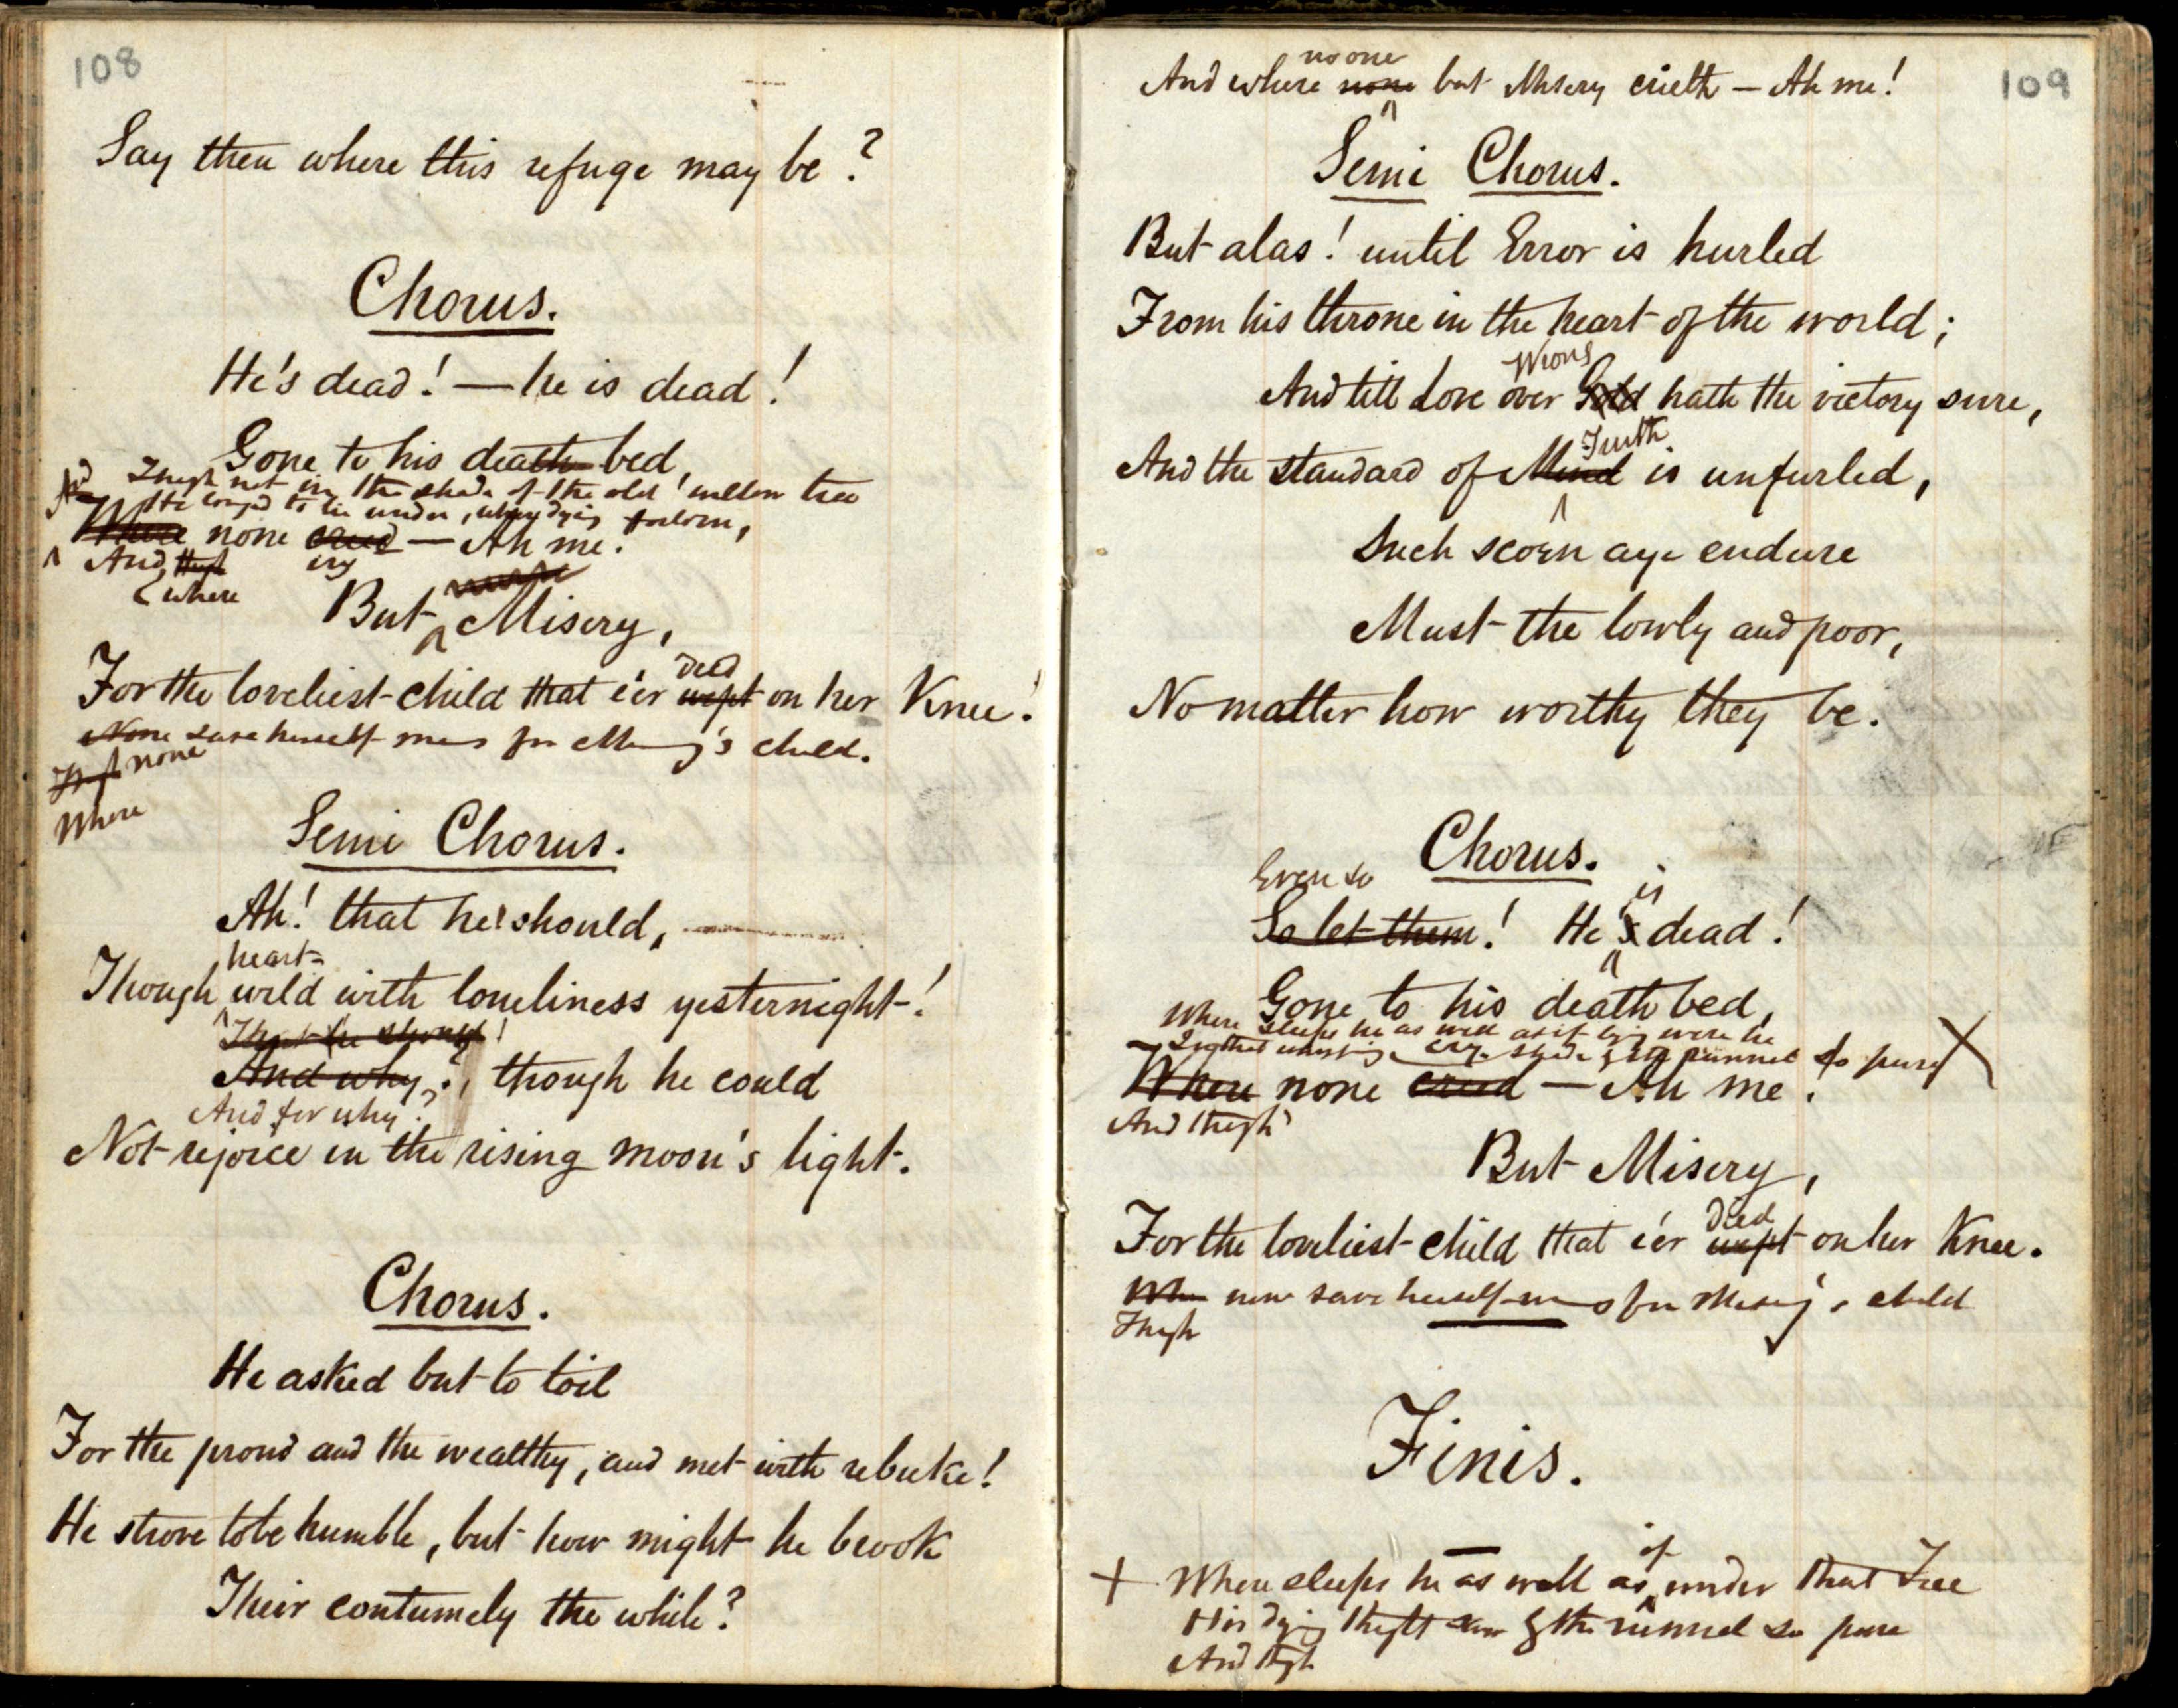 108
Say then where this refuge may be?
Chorus.
He's dead! — he is dead!
Gone to his death bed,
And Though not in the shade of the old willow tree
He longed to lie under, when dying forlorn,
Where none cried — Ah me!
And, Though cry
where
But Misery,
died
For the loveliest child that e'er wept on her Knee!
None save herself for Misery's child.
Though none
Where
Semi Chorus.
Ah! that he should,
heart-
Though wild with loneliness yesternight!
That he should!
And why?, though he could
And for why?
Not rejoice in the rising moon's light.
Chorus.
He asked but to toil
For the proud and the wealthy, and met with rebuke!
He strove to be humble, but how might he brook
Their contumely the while?
109
no one
And where none but Misery crieth — Ah me!
Semi Chorus.
But alas! until Error is hurled
From his throne in the heart of the world;
Wrong
And till Love over Gold hath the victory sure,
Truth
And the standard of Mind is unfurled,
Such scorn aye endure
Must the lowly and poor,
No matter how worthy they be.
Chorus.
Even so is
So let them! He's dead!
Gone to his death bed,
Where sleeps he as well as if lying were he
shade & the runnel so pure X
Where none cried — Ah me!
And though
But Misery,
died
For the loveliest child that e'er wept on her Knee.
save herself for Misery's child
Though
Finis.
if
+ Where sleeps he as well as under that Tree
His dying thought & the runnel so pure
And though